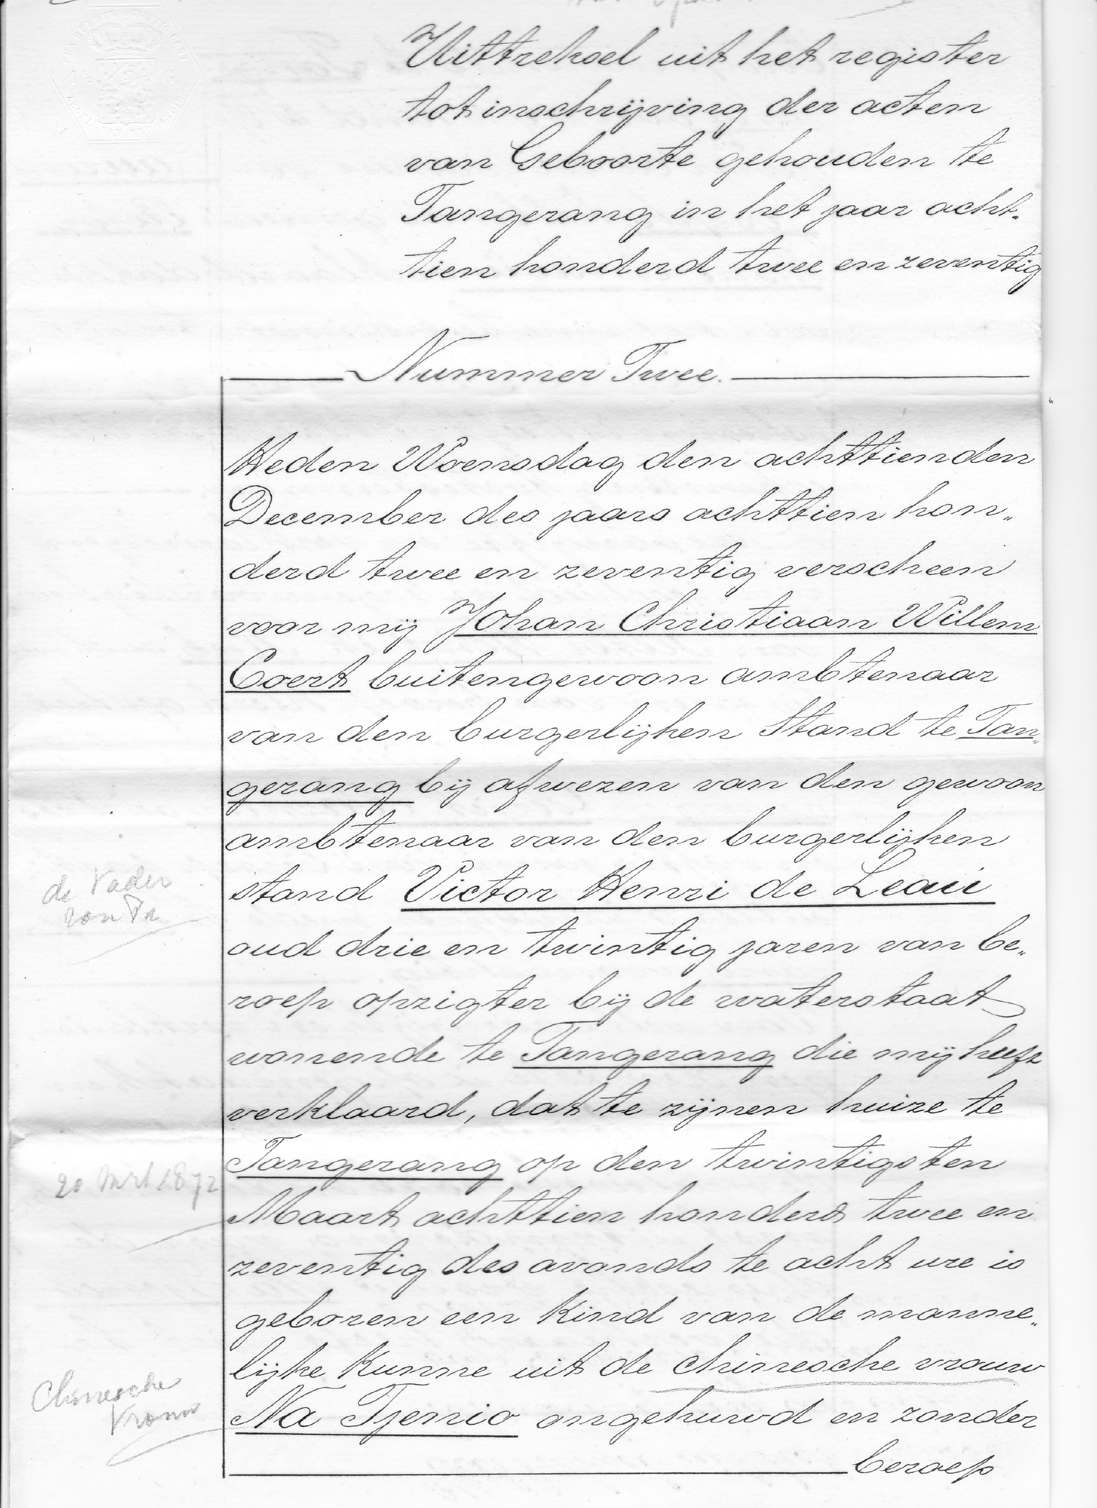 Uittreksel uit het register
tot inschrijving der acten
van Geboorte gehouden te
Tangerang in het jaar acht-
tien honderd twee en zeventig
Nummer Twee.
Heden Woensdag den achttienden
December des jaars achttien hon„
derd twee en zeventig verscheen
voor mij Johan Christiaan Willem
Coert buitengewoon ambtenaar
van den burgerlijken Stand te Tan„
gerang bij afwezen van den gewoon
ambtenaar van den burgerlijken
de Vader
stand Victor Henri de Leau
oud drie en twintig jaren van be„
roep opzigter bij de waterstaat
wonende te Tangerang die mij heeft
verklaard, dat te zijnen huize te
Tangerang op den twintigsten
20 Mrt 1872
Maart achttien honderd twee en
zeventig des avonds te acht ure is
geboren een kind van de manne„
lijke kunne uit de chineesche vrouw
Chineesche
Vrouw
Na Tjenio ongehuwd en zonder
beroep